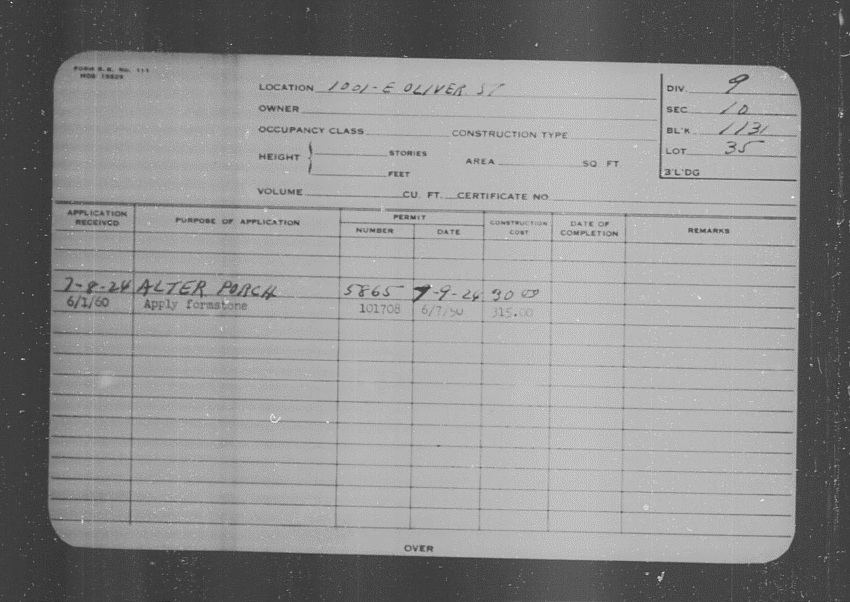 FORM B. E. No. 111
LOCATION 1001-E OLIVER ST
DIV. 9
OWNER
SEC 10
OCCUPANCY CLASS CONSTRUCTION TYPE
BL'K 1131
HEIGHT STORIES AREA SQ FT
LOT 35
FEET
B'L'DG
VOLUME CU. FT. CERTIFICATE NO
APPLICATION RECEIVED PURPOSE OF APPLICATION PERMIT NUMBER DATE CONSTRUCTION COST DATE OF COMPLETION REMARKS
7-8-24 ALTER PORCH 5865 7-9-24 30 00
6/1/60 Apply formstone 101708 6/7/50 315.00
OVER